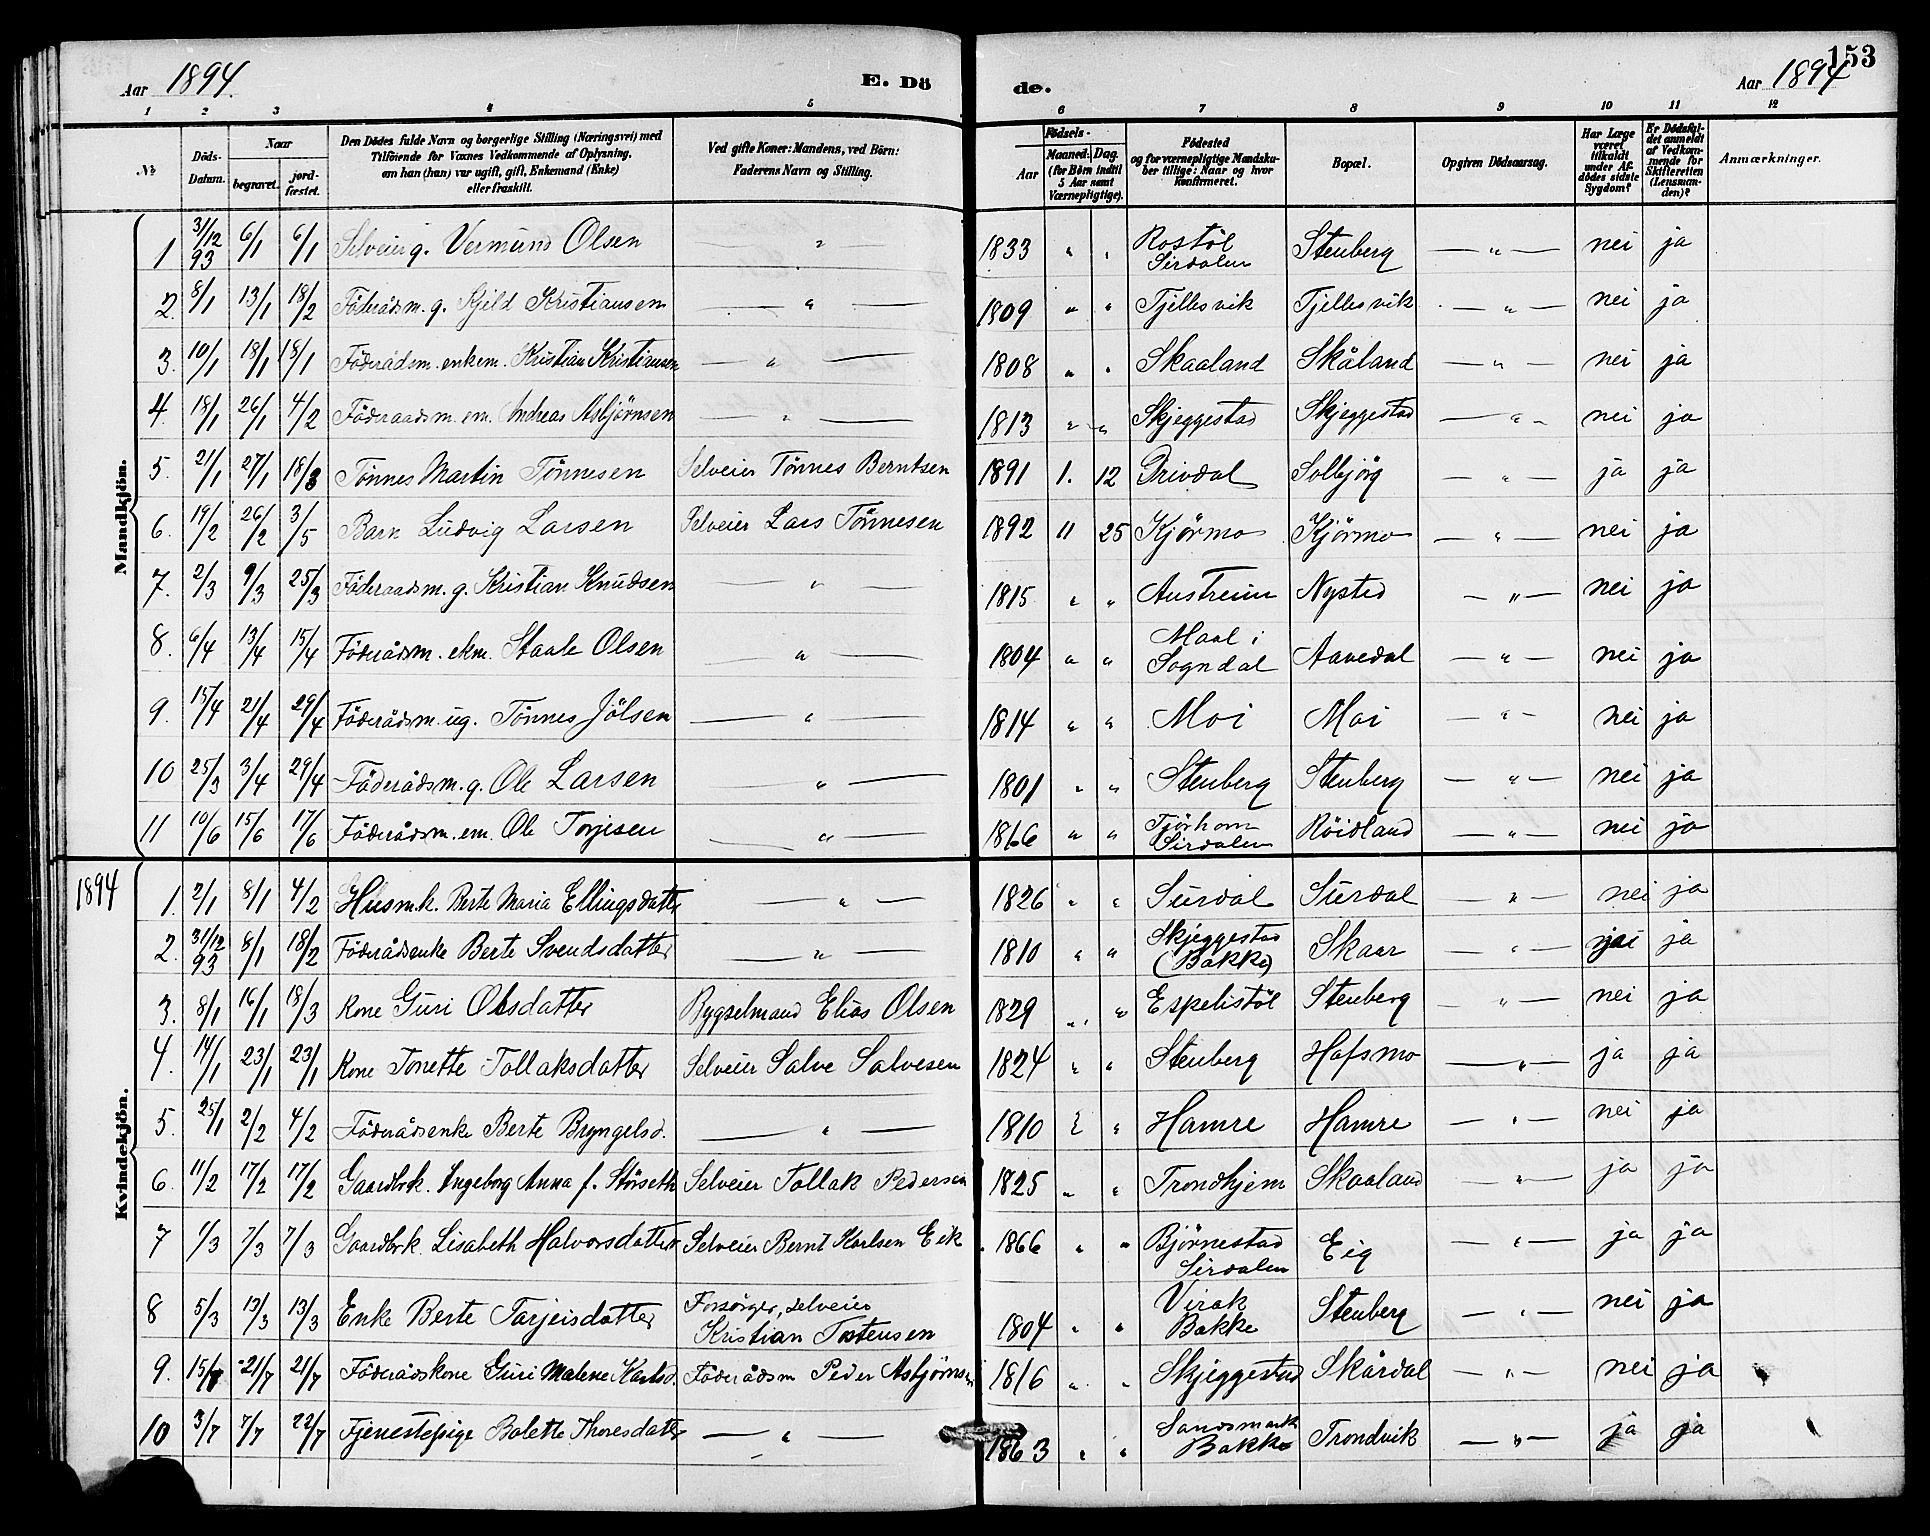 Aar 1894. E. Dö de. Aar 1894 153
1 2 3 4 5 6 7 8 9 10 11 12
No Döds-Datum. Naar begravet. jordfæstet. Den Dödes fulde Navn og borgerlige Stilling (Næringsvei) med Tilföiende for Voxnes Vedkommende af Oplysning, om han (hun) var ugift, gift, Enkemand (Enke) eller fraskilt. Ved gifte Koner: Mandens, ved Börn: Faderens Navn og Stilling. Födsels- Aar Maaned: Dag. (for Börn indtil 5 Aar samt Værnepligtige). Födested og for værnepligtige Mandskaber tillige: Naar og hvor Konfirmeret. Bopæl. Opgiven Dödsaarsag. Har Læge været tilkaldt under Afdödes sidste Sygdom? Er Dödsfaldet anmeldt af Vedkommende for Skifteretten (Lensmanden)? Anmærkninger.
Mandkjön.
1 31/12 93 6/1 6/1 Selveier g. Vermund Olsen — " — 1833 " " Rostöl Sirdalen Stenberg — " — nei ja
2. 8/1 13/1 18/2 Föderådsm. g. Kjeld Kristiansen — " — 1809 " " Tjellesvik Tjellesvik — " — nei ja
3. 10/1 18/1 18/1 Föderådsm. enkem. Kristian Kristiansen — " — 1808 " " Skaaland Skåland — " — nei ja
4. 18/1 26/1 4/2 Föderaadsm. em. Andreas Asbjörnsen — " — 1813 " " Skjeggestad Skjeggestad — " — nei ja
5. 21/1 27/1 18/3 Tönnes Martin Tönnesen Selveier Tönnes Berntsen 1891 1. 12 Drivdal Solbjörg — " — ja ja
6. 19/2 26/2 3/5 Barn Ludvig Larsen Selveier Lars Tönnesen 1892 11 25 Kjörmo Kjörmo — " — nei ja
7. 2/3 9/3 25/3 Föderaadsm. g. Kristian Knudsen — " — 1815 " " Austreim Nysted — " — nei ja
8. 6/4 13/4 15/4 Föderådsm. ekm. Staale Olsen — " — 1804 " " Maal i Sogndal Aavedal — " — nei ja
9. 15/4 21/4 29/4 Föderådsm. ug. Tönnes Jölsen — " — 1814 " " Moi Moi — " — nei ja
10 25/3 3/4 29/4 Föderådsm. g. Ole Larsen — " — 1801 " " Stenberg Stenberg — " — nei ja
11 10/6 15/6 17/6 Föderådsm. em. Ole Torjesen — " — 1866 " " Tjörhom Sirdalen Röidland — " — nei ja
1894
Kvindekjön.
1. 2/1 8/1 4/2 Husm.k. Berte Maria Ellingsdatter — " — 1826 " " Surdal Surdal — " — nei ja
2. 31/12 93 8/1 18/2 Föderådsenke Berte Svendsdatter — " — 1810 " " Skjeggestad (Bakke) Skaar — " — ja
3. 8/1 16/1 18/3 Kone Guri Olsdatter Bygselmand Elias Olsen 1829 " " Espelistöl Stenberg — " — nei ja
4. 14/1 23/1 23/1 Kone Tonette Tollaksdatter Selveier Salve Salvesen 1824 " " Stenberg Hafsmo — " — ja ja
5. 25/1 2/2 4/2 Föderådsenke Berte Bryngelsd. — " — 1810 " " Hamre Hamre — " — nei ja
6. 11/2 17/2 17/2 Gaardbrk. Ingeborg Anna f. Störseth Selveier Tollak Pedersen 1825 " " Trondhjem Skaaland — " — ja ja
7 1/3 7/3 7/3 Gaardbrk. Lisabeth Halvorsdatter Selveier Bernt Karlsen Eik 1866 " " Björnestad Sirdalen Eig — " — ja ja
8 5/3 13/3 13/3 Enke Berte Tarjeisdatter Forsörger, selveier Kristian Tostensen 1804 " " Virak Bakke Stenberg — " — nei ja
9. 15/7 21/7 21/7 Föderådskone Guri Malene Karlsd. Föderådsm Peder Asbjörnsen 1816 " " Skjeggestad Skårdal — " — nei ja
10 3/7 7/7 22/7 Tjenestepige Bolette Thoresdatter — " — 1863 " " Sandsmark Bakke Trondvik — " — ja ja